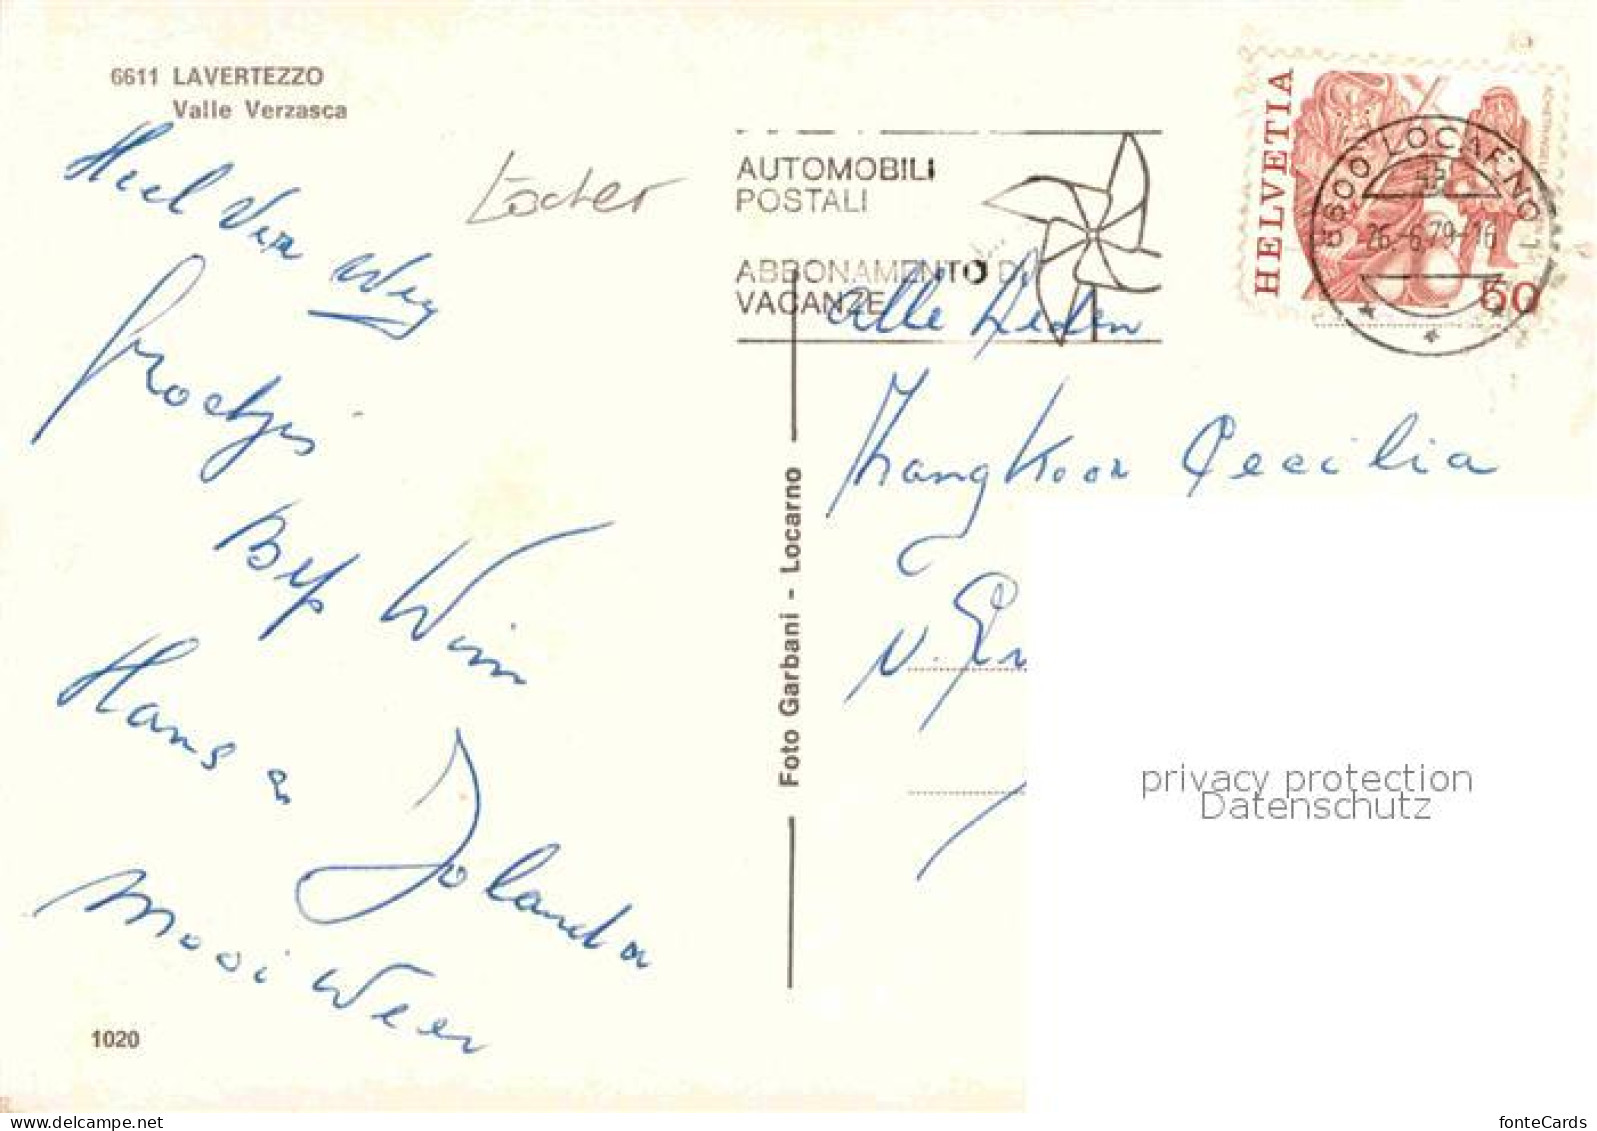 6611 LAVERTEZZO
Valle Verzasca
Heel Ver Weg
groetjes
Bep Wim
Hans en
Jolanda
Mooi Weer
1020
Foto Garbani - Locarno
AUTOMOBILI
POSTALI
ABBONAMENTO DI
VACANZE
HELVETIA
6600 LOCARNO 1
26.-6.79-16
60
alle Leden
Zangkoor Cecilia
privacy protection
Datenschutz
fonteCards